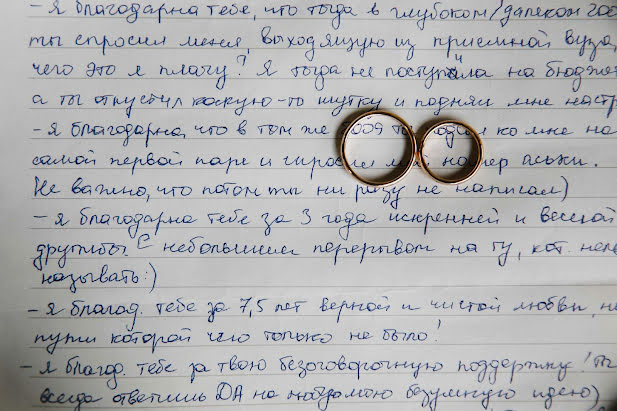 - Я благодарна тебе, что тогда в глубоком/далеком 200
ты спросил меня, выходящую из приемной вуза,
чего это я плачу? Я тогда не поступила на бюджет
а ты отпустил какую-то шутку и поднял мне настр
- я благодарна, что в том же 2009 ты подсел ко мне на
самой первой паре и спросил мой номер аськи.
Не важно, что потом ты ни разу не написал)
- я благодарна тебе за 3 года искренней и веселой
дружбы. С небольшим перерывом на ту, кот. нель
называть:)
- я благод. тебе за 7,5 лет верной и чистой любви, на
пути которой чего только не было!
- я благод. тебе за твою безоговорочную поддержку! Ты
всегда ответишь ДА на любую мою безумную идею)